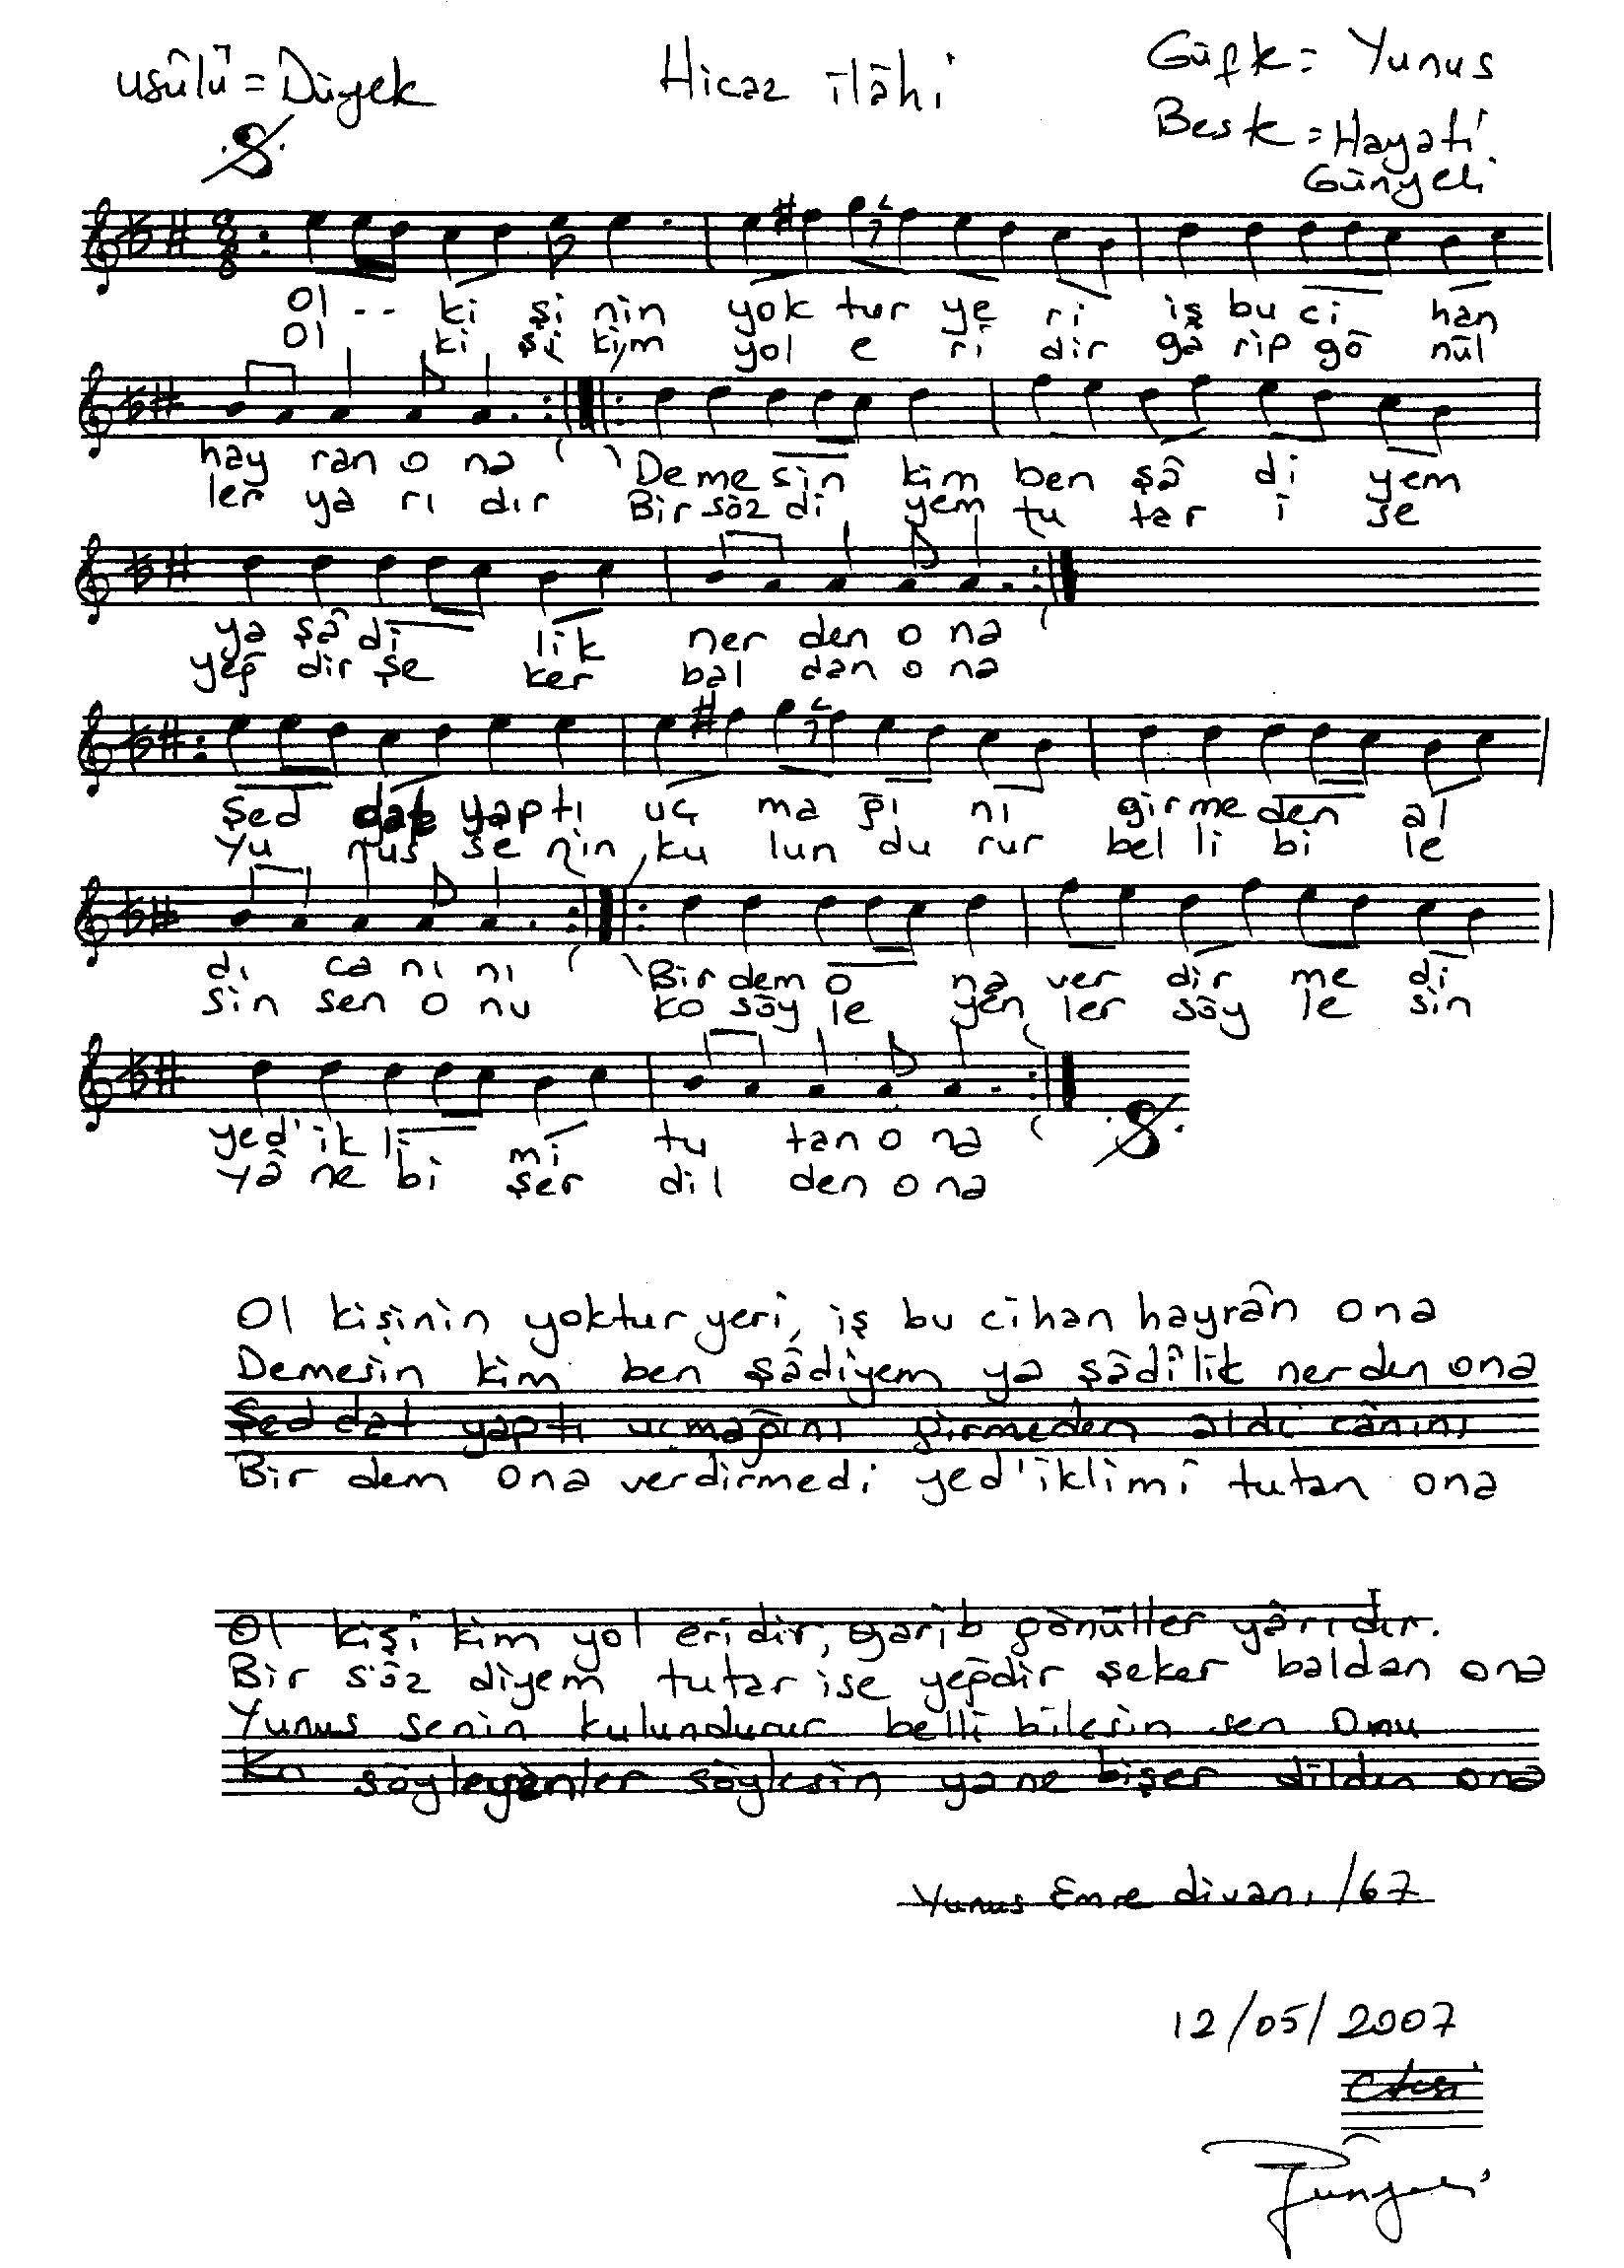 usûlü = Düyek
Hicaz ilâhi
Güfk = Yunus
Besk = Hayati
Günyeli
Ol -- ki şi nin yok tur ye ri iş bu ci han
Ol ki şi kim yol e ri dir gâ rip gö nül
hay ran o na Deme sin kim ben şâ di yem
ler ya rı dır Bir söz di yem tu tar i se
ya şâ di lik ner den o na
yeğ dir şe ker bal dan o na
Şed dat yaptı uç ma ğı nı girme den al
Yu nus se nin ku lun du rur bel li bi le
dı ca nı nı Bir dem o na ver dir me di
sin sen o nu ko söy le yen ler söy le sin
yed' ik li mi tu tan o na
Yâ ne bi şer dil den o na
Ol kişinin yoktur yeri, iş bu cihan hayrân ona
Demesin kim ben şâdiyem ya şâdîlik nerden ona
Şeddat yaptı uçmağını girmeden aldı cânını
Bir dem ona verdirmedi yed'iklimi tutan ona
Ol kişi kim yol eridir, garib gönüller yârıdır.
Bir söz diyem tutar ise yeğdir şeker baldan ona
Yunus senin kulundurur belli bilesin sen onu
Ko söyleyenler söylesin ya ne bişer dilden ona
Yunus Emre divanı /67
12/05/2007